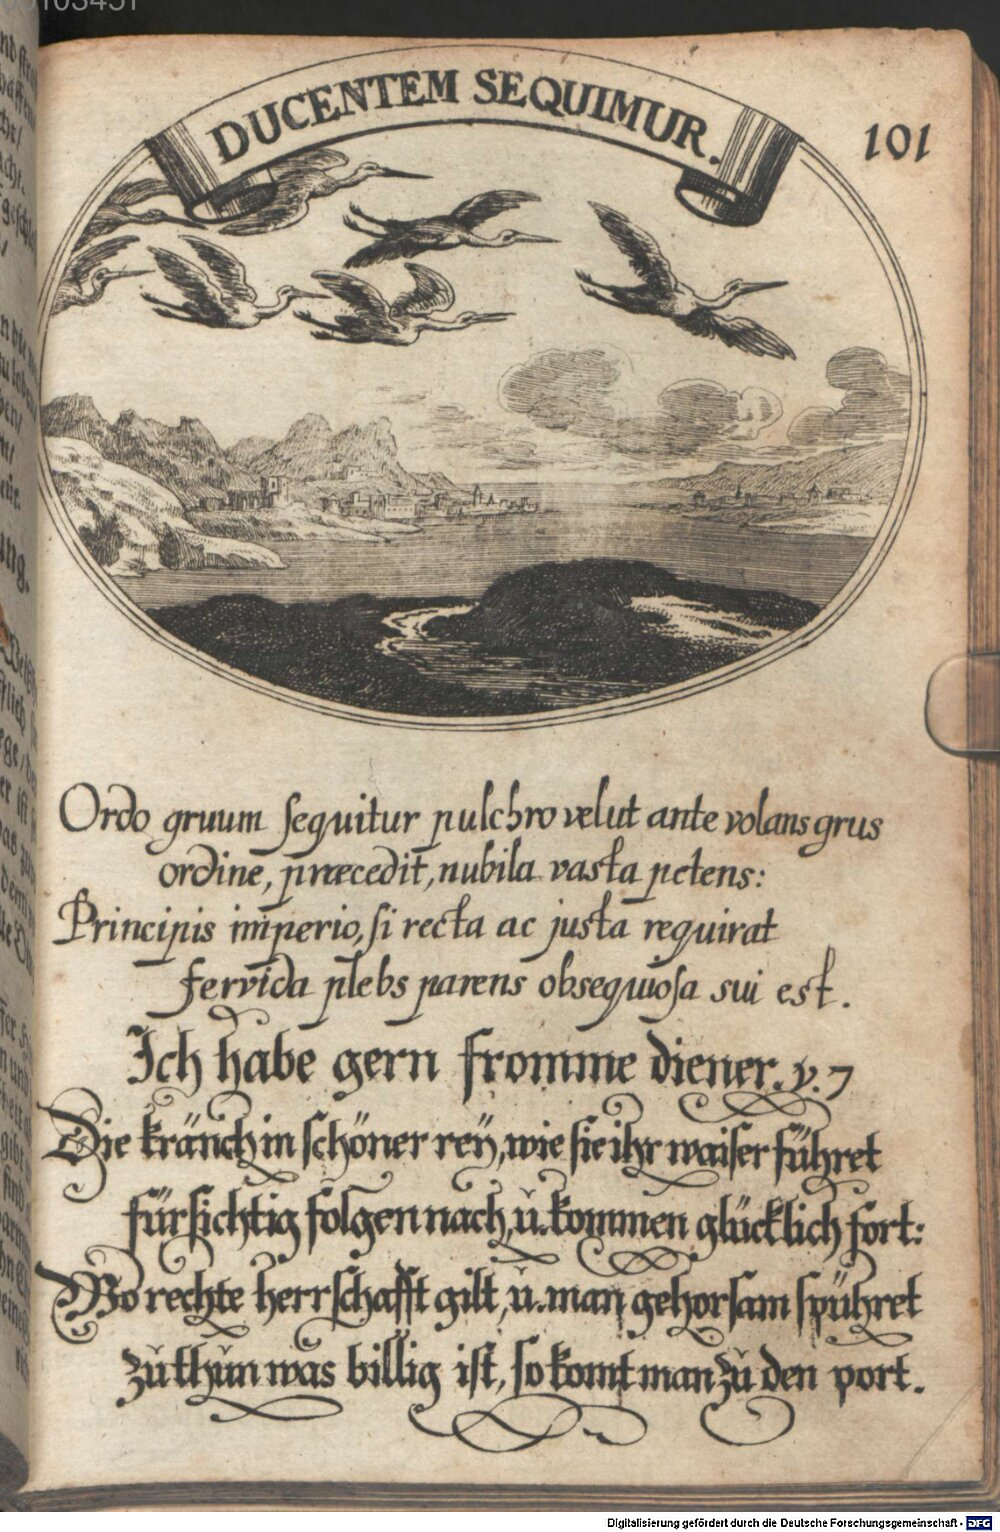 DUCENTEM SEQUIMUR.
101
Ordo gruum sequitur pulchro velut ante volans grus
ordine, præcedit, nubila vasta petens:
Principis imperio, si recta ac justa requirat
fervida plebs parens obsequiosa sui est.
Ich habe gern fromme diener. v. 7
Die kränch in schöner reÿ, wie sie ihr waiser führet
fürsichtig folgen nach, ŭ. kommen glücklich fort:
Wo rechte herrschafft gilt, ŭ. man gehorsam spühret
zŭ thŭn was billig ist, so komt man zŭ den port.
Digitalisierung gefördert durch die Deutsche Forschungsgemeinschaft - DFG